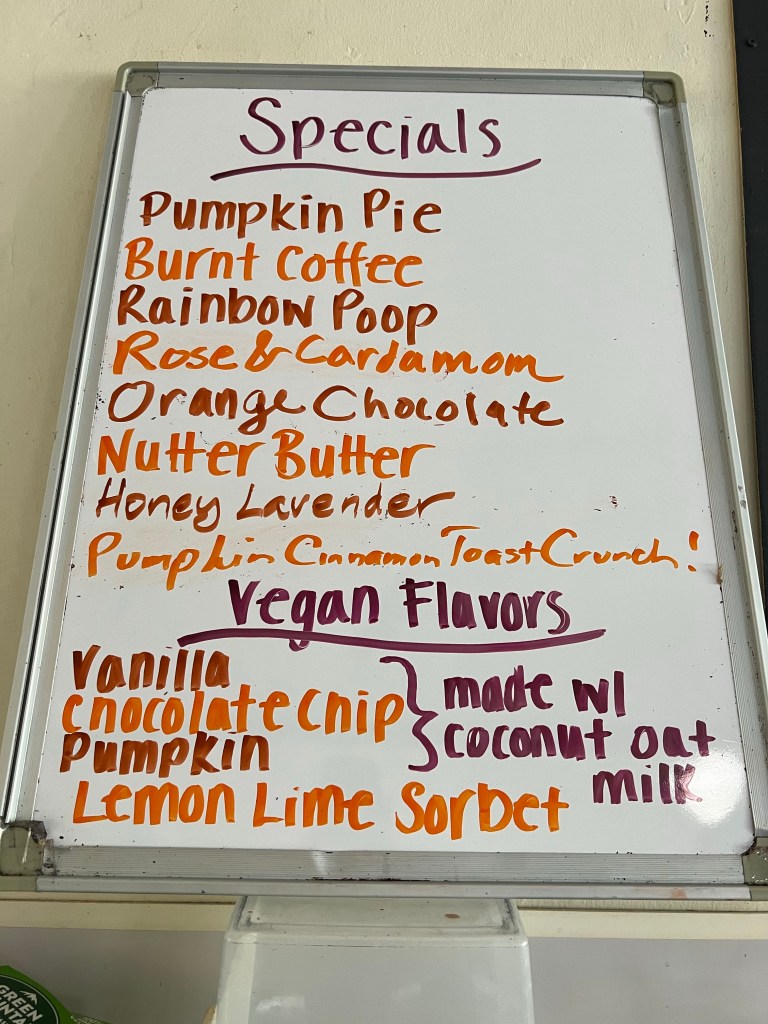 Specials
Pumpkin Pie
Burnt Coffee
Rainbow Poop
Rose & Cardamom
Orange Chocolate
Nutter Butter
Honey Lavender
Pumpkin Cinnamon Toast Crunch!
Vegan Flavors
Vanilla
chocolate chip
Pumpkin
made w/
coconut oat
milk
Lemon Lime Sorbet
GREEN